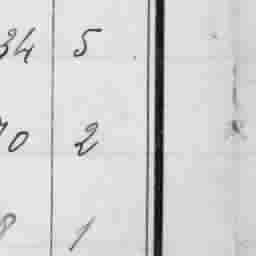 34 5
70 2
8 1